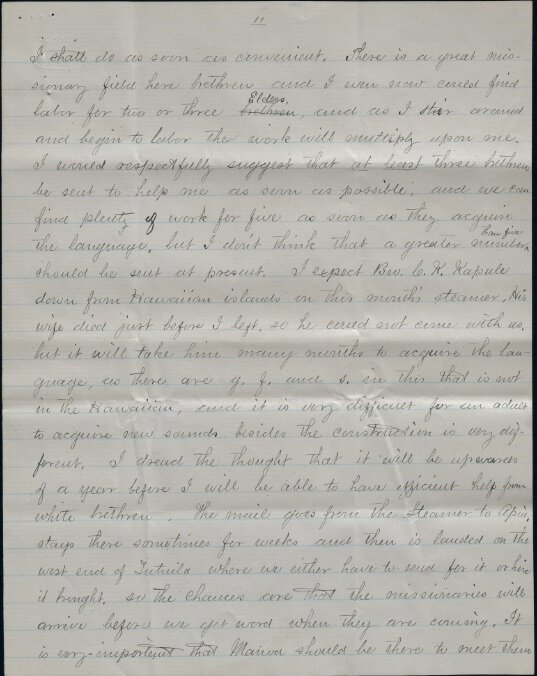 11
I shall do as soon as convenient. There is a great mis-
sionary field here brethren and I even now could find
Elders,
labor for two or three brethren, and as I stir around
and begin to labor the work will multiply upon me.
I would respectfully suggest that at least three brethren
be sent to help me as soon as possible, and we can
find plenty of work for five as soon as they acquire
than five
the language, but I don't think that a greater number
should be sent at present. I expect Bro. C. K. Kapule
down from Hawaiian islands on this month's steamer. His
wife died just before I left, so he could not come with us,
but it will take him many months to acquire the lan-
guage, as there are g. f. and s. in this that is not
in the Hawaiian, and it is very difficult for an adult
to acquire new sounds. besides the construction is very dif-
ferent. I dread the thought that it will be upwards
of a year before I will be able to have efficient help from
white brethren. The mail goes from the Steamer to Apia,
stays there sometimes for weeks and then is landed on the
west end of Tutuila where we either have to send for it or hire
it brought. so the chances are that the missionaries will
arrive before we get word when they are coming. It
is very important that Manoa should be there to meet them